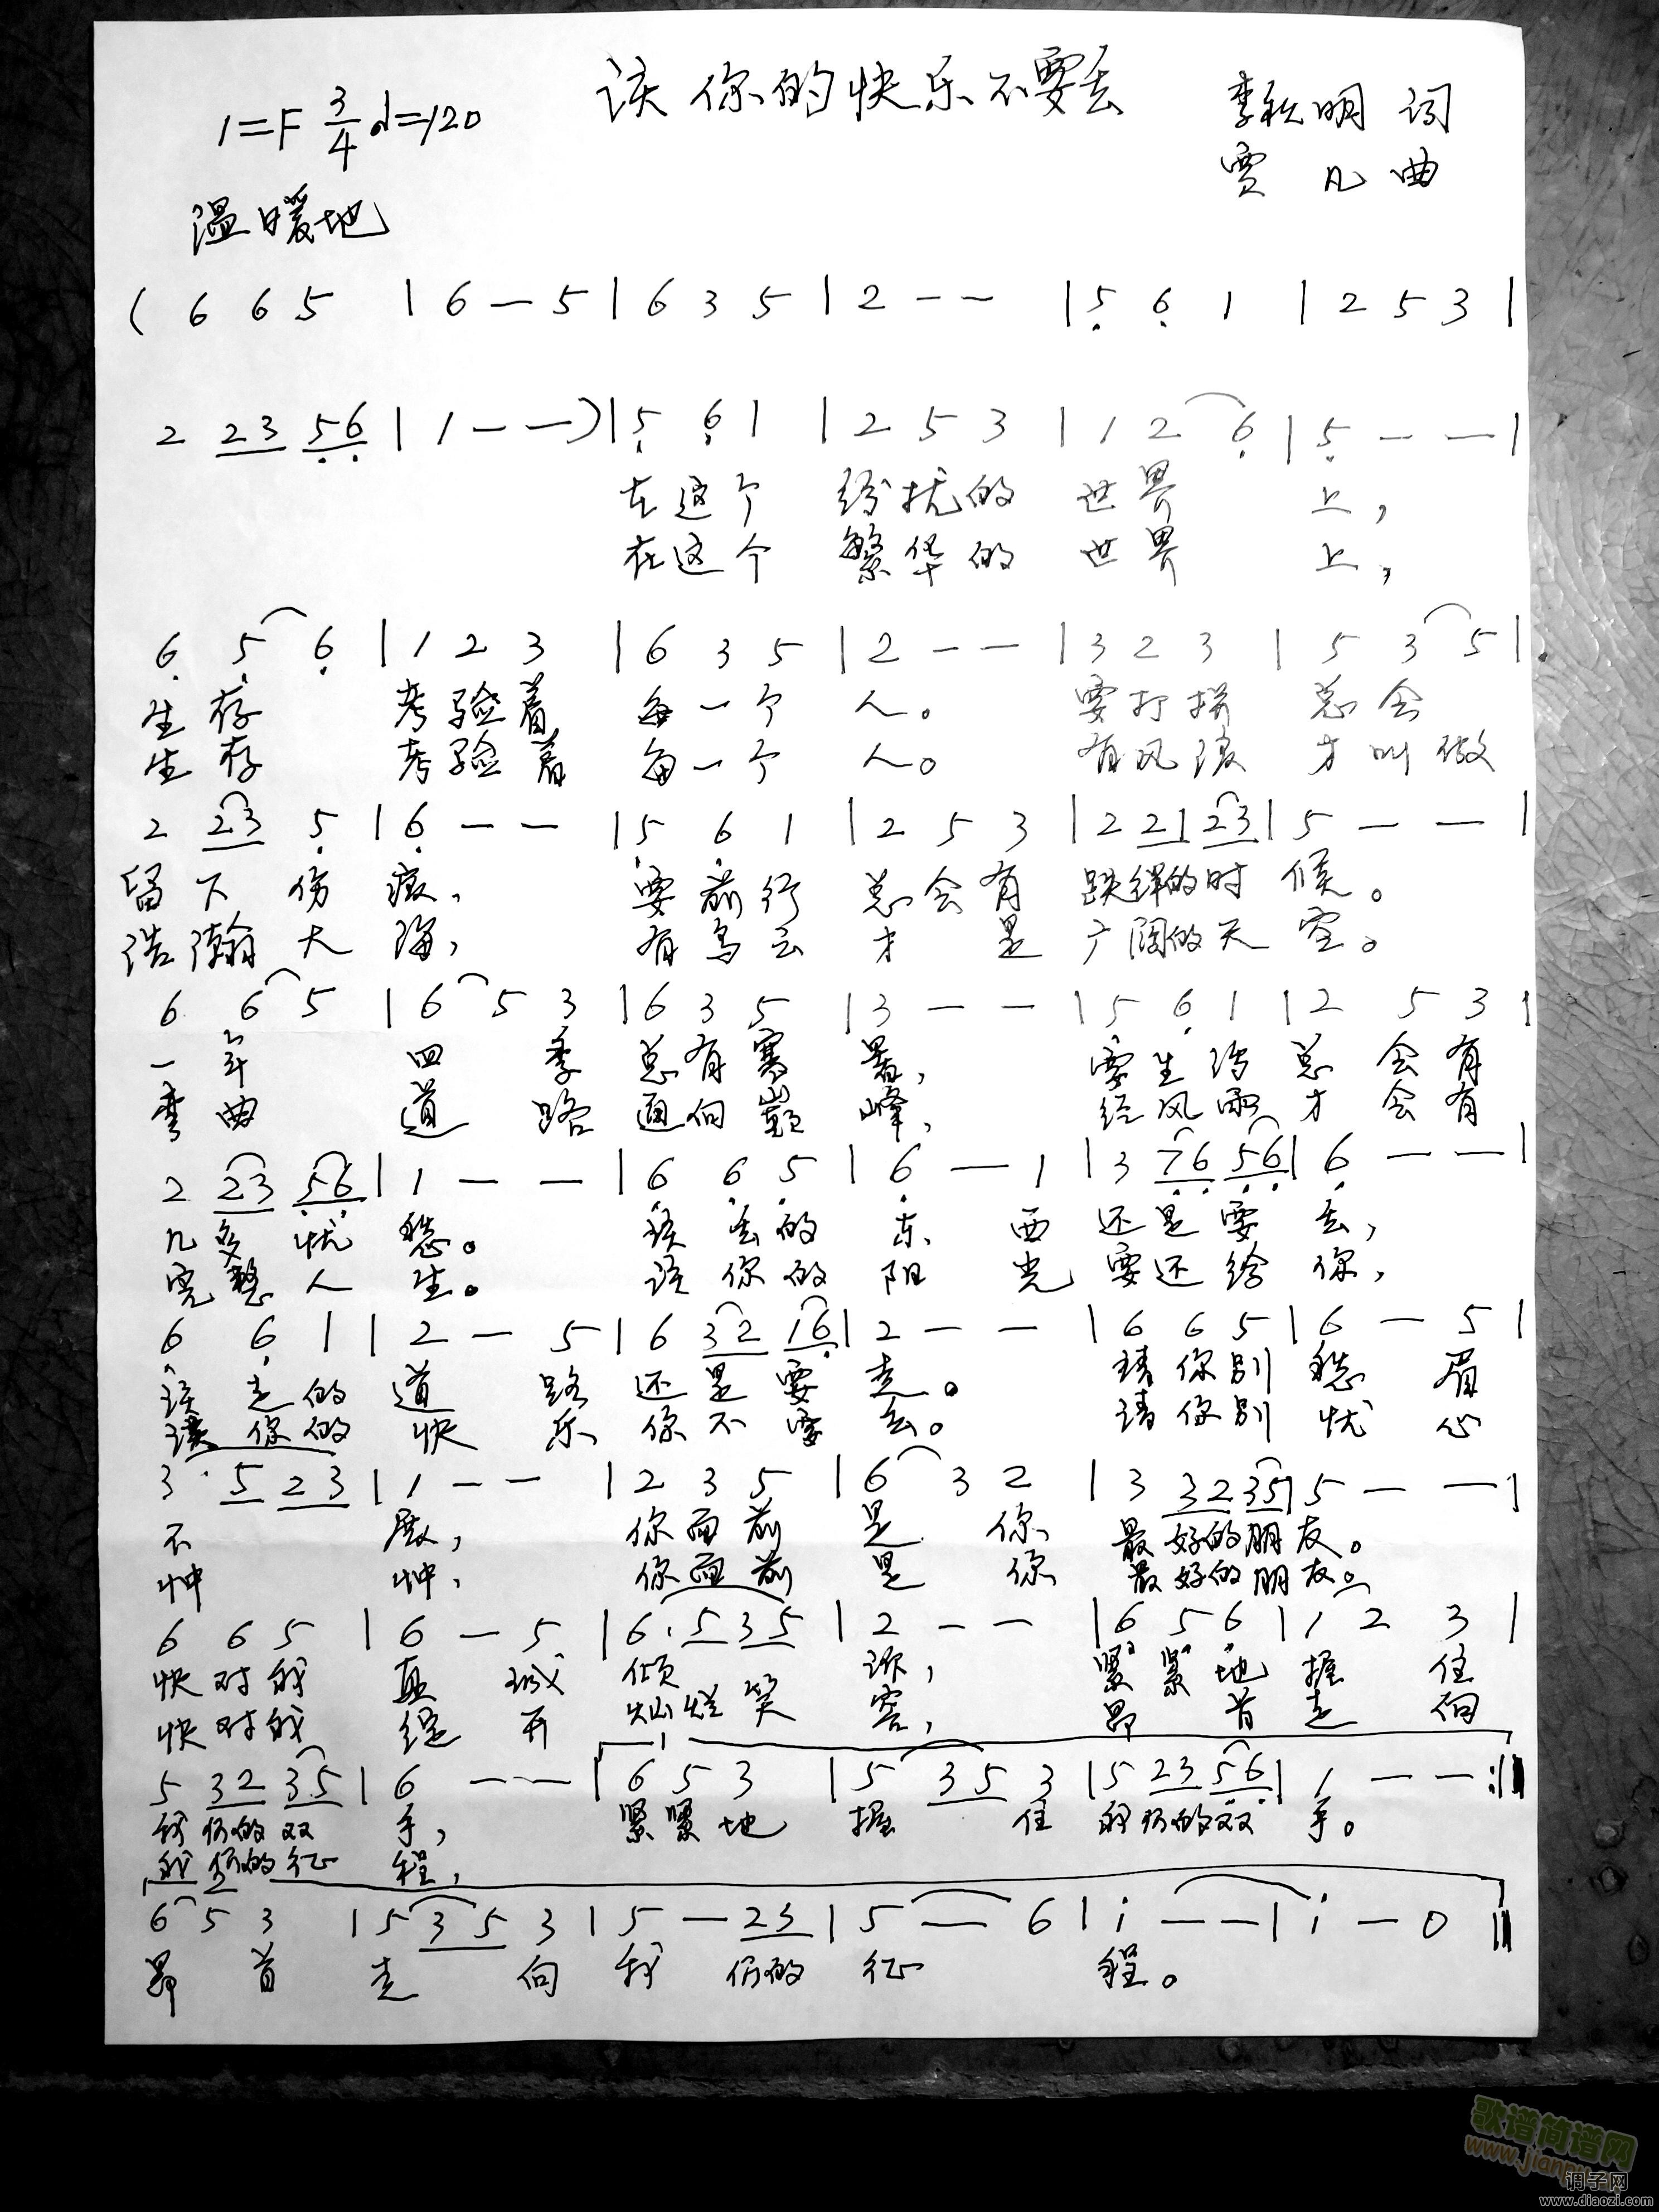 该你的快乐不要丢
1=F 3/4 ♩=120
李秋明 词
贾 凡 曲
温暖地
( 6 6 5 | 6 — 5 | 6 3 5 | 2 — — | 5̣ 6̣ 1 | 2 5 3 |
2 23 5̣6̣ | 1 — — ) | 5̣ 6̣ 1 | 2 5 3 | 1 2 6̣ | 5̣ — — |
在这个 纷扰的 世界 上,
在这个 繁华的 世界 上,
6̣ 5̣ 6̣ | 1 2 3 | 6 3 5 | 2 — — | 3 2 3 | 5 3 5 |
生存 考验着 每一个 人。 要打拼 总会
生存 考验着 每一个 人。 有风浪 才叫做
2 23 5̣ | 6̣ — — | 5̣ 6̣ 1 | 2 5 3 | 2 21 23 | 5 — — |
留下伤 痕, 要前行 总会有 跌绊的时 候。
浩瀚大 海, 有乌云 才 是 广阔的天 空。
6 6 5 | 6 5 3 | 6 3 5 | 3 — — | 5̣ 6̣ 1 | 2 5 3 |
一年 四 季 总有寒 暑, 要生活 总会有
弯曲 道 路 通向巅 峰, 经风雨 才会有
2 23 5̣6̣ | 1 — — | 6̣ 6̣ 5̣ | 6̣ — 1 | 3 7̣6̣ 5̣6̣ | 6̣ — — |
几多忧 愁。 该丢的 东 西 还是要 丢,
完整人 生。 该你的 阳 光 要还给 你,
6̣ 6̣ 1 | 2 — 5 | 6 32 16̣ | 2 — — | 6 6 5 | 6 — 5 |
该走的 道 路 还是要 走。 请你别 愁 眉
该你的 快 乐 你不要 丢。 请你别 忧 心
3 · 5 23 | 1 — — | 2 3 5 | 6 3 2 | 3 32 35 | 5 — — |
不 展, 你面前 是 你 最好的朋 友。
忡 忡, 你面前 是 你 最好的朋 友。
6 6 5 | 6 — 5 | 6 · 5 35 | 2 — — | 6̣ 5̣ 6̣ | 1 2 3 |
快对我 真 诚 倾 诉, 紧紧地 握 住
快对我 绽 开 灿烂笑 容, 昂 首 走 向
5 32 35 | 6 — — | 1 6 5 3 | 5 35 3 | 5 23 5̣6̣ | 1 — — :‖
我们的双 手, 紧紧地 握 住 我们的双 手。
我们的征 程,
2 6 5 3 | 5 35 3 | 5 — 23 | 5 — 6 | i — — | i — 0 ‖
昂 首 走 向 我 们的 征 程。
歌谱简谱网
www.jianpu.cn
调子网
www.diaozi.com